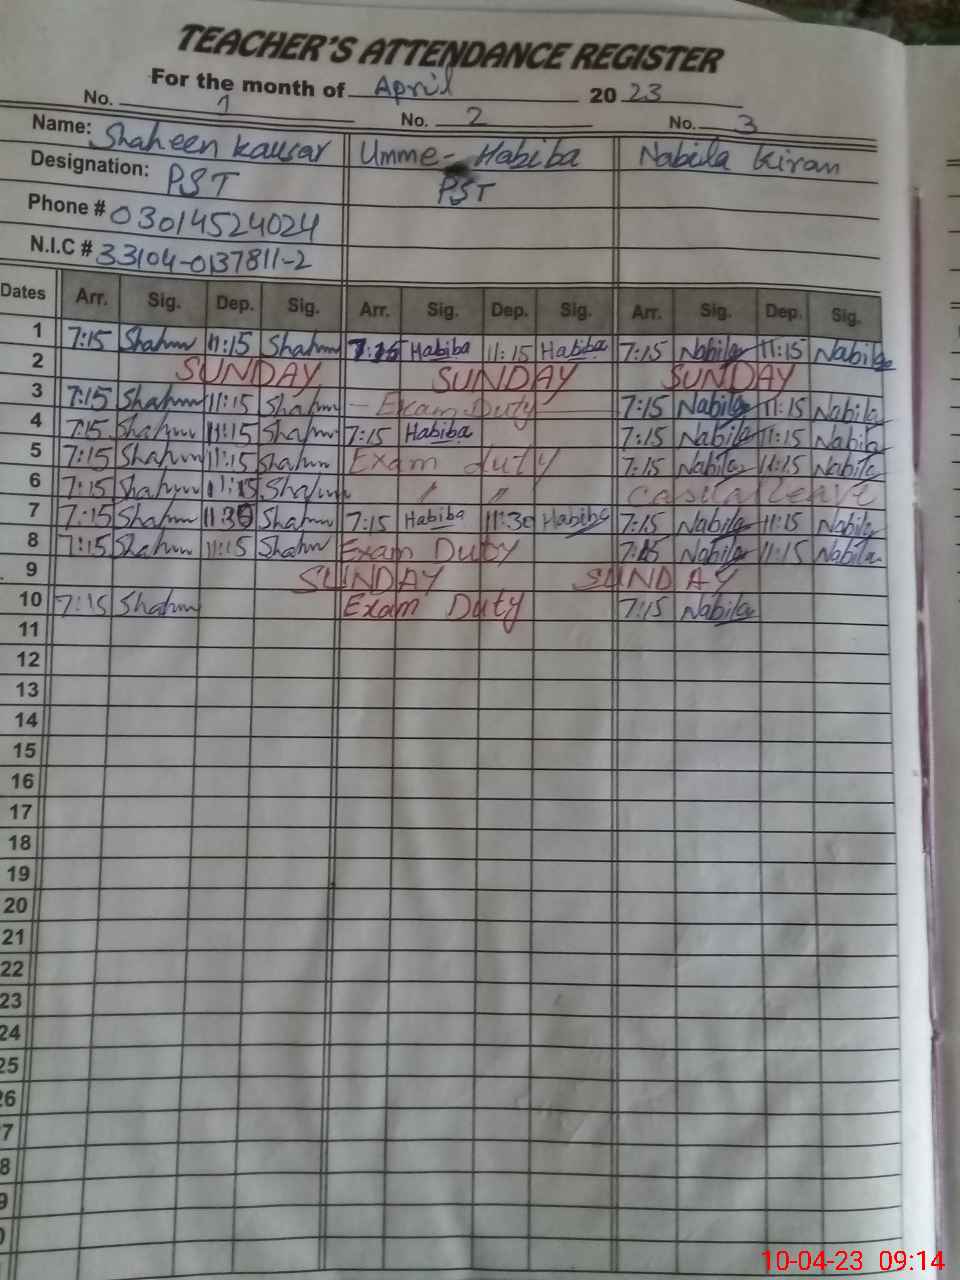 TEACHER'S ATTENDANCE REGISTER
For the month of April 2023
No. 1 No. 2 No. 3
Name: Shaheen Kausar Umme-Habiba Nabila Kiran
Designation: PST PST
Phone # 03014524024
N.I.C # 33104-0137811-2
Dates Arr. Sig. Dep. Sig. Arr. Sig. Dep. Sig. Arr. Sig. Dep. Sig.
1 7:15 Shahm 11:15 Shahm 7:15 Habiba 11:15 Habiba 7:15 Nabila 11:15 Nabila
2 SUNDAY SUNDAY SUNDAY
3 7:15 Shahm 11:15 Shahm - Exam Duty 7:15 Nabila 11:15 Nabila
4 7:15 Shahm 11:15 Shahm 7:15 Habiba 7:15 Nabila 11:15 Nabila
5 7:15 Shahm 11:15 Shahm Exam duty 7:15 Nabila 11:15 Nabila
6 7:15 Shahm 11:15 Shahm " " Leave
7 7:15 Shahm 11:30 Shahm 7:15 Habiba 11:30 Habiba 7:15 Nabila 11:15 Nabila
8 7:15 Shahm 11:15 Shahm Exam Duty 7:15 Nabila 11:15 Nabila
9 SUNDAY SUNDAY
10 7:15 Shahm Exam Duty 7:15 Nabila
11
12
13
14
15
16
17
18
19
20
21
22
23
24
25
26
7
8
9
0
10-04-23 09:14